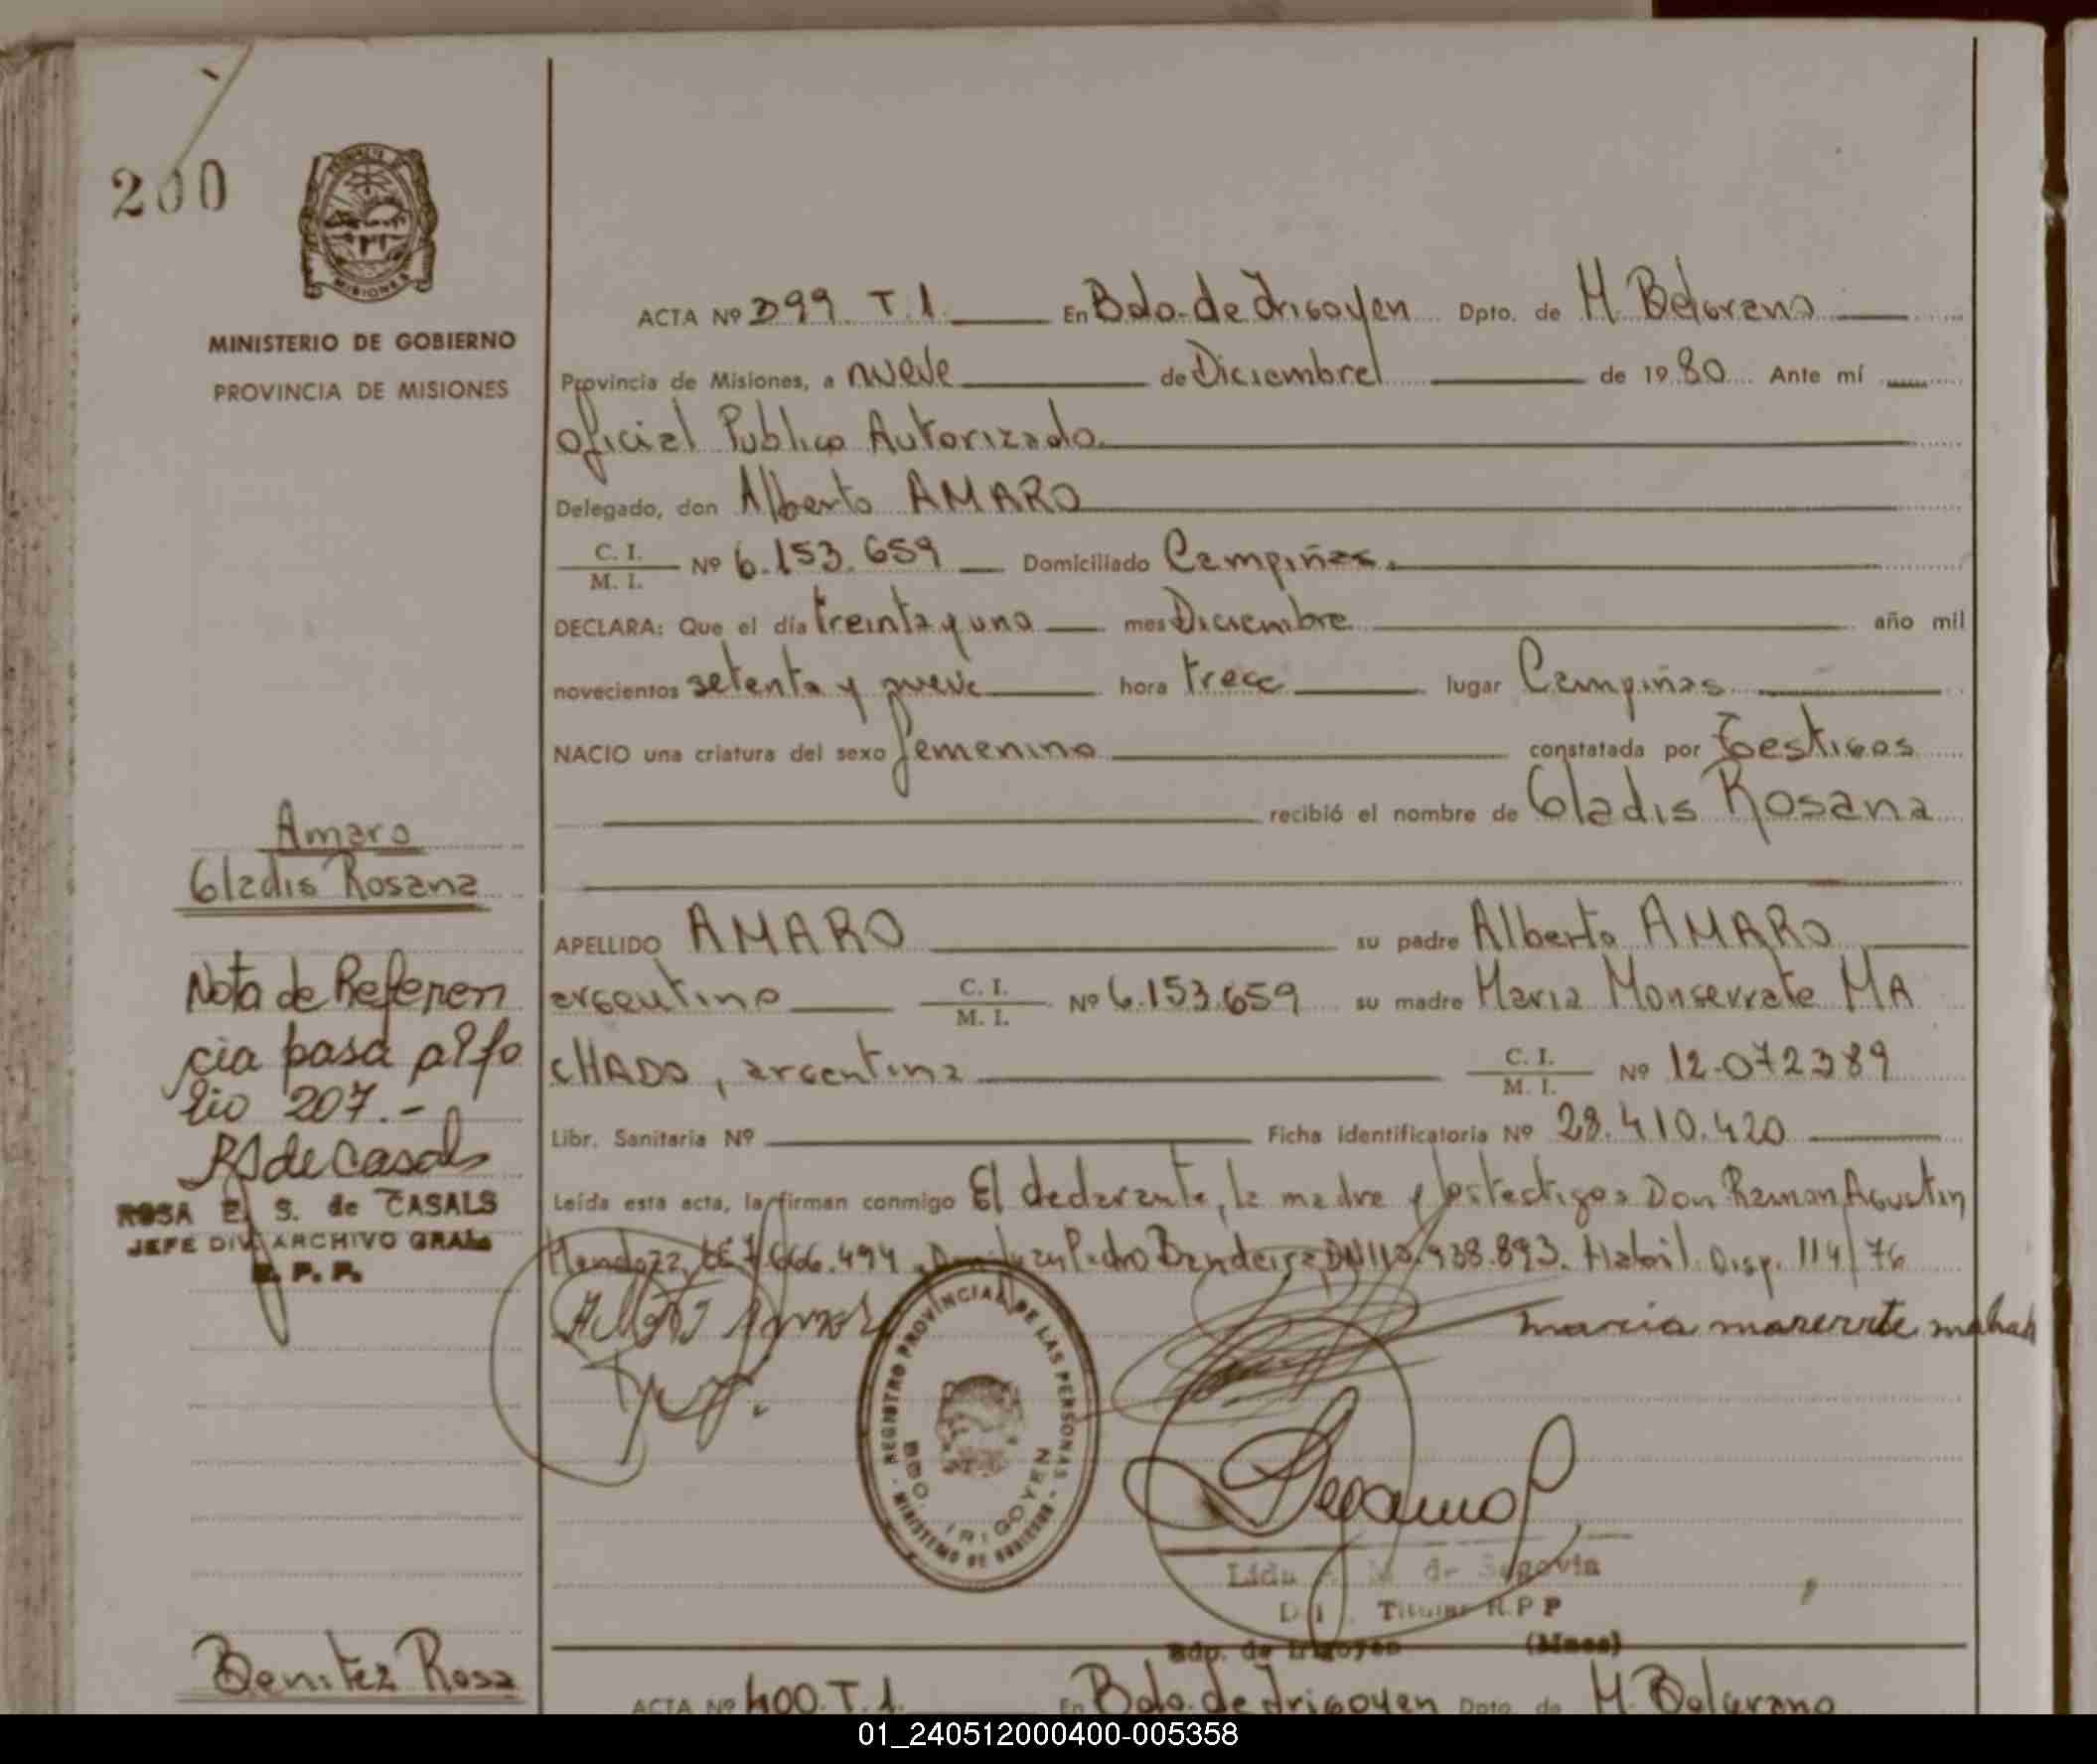 200
MISIONES
MINISTERIO DE GOBIERNO
PROVINCIA DE MISIONES
ACTA Nº 399 T.1. En Bdo. de Irigoyen Dpto. de M. Belgrano
Provincia de Misiones, a nueve de Diciembre de 1980 Ante mí
oficial Publico Autorizado
Delegado, don Alberto AMARO
C. I. / M. I. Nº 6.153.659 Domiciliado Campiñas.
DECLARA: Que el día treinta y uno mes Diciembre año mil
novecientos setenta y nueve hora trece lugar Campiñas
NACIO una criatura del sexo femenino constatada por testigos
recibió el nombre de Gladis Rosana
Amaro
Gladis Rosana
APELLIDO AMARO su padre Alberto AMARO
argentino C. I. / M. I. Nº 6.153.659 su madre Maria Monserrate MA
CHADO, argentina C. I. / M. I. Nº 12.072389
Libr. Sanitaria Nº Ficha identificatoria Nº 28.410.420
Leída esta acta, la firman conmigo El declarante, la madre y testigos Don Ramon Agustin
Mendoza, LE 7.666.494, Pedro Bandeira DNI 938.893. Habil. Disp. 114/76
maria
Nota de Referen
cia pasa al fo
lio 207.-
RS de Casals
ROSA E. S. de CASALS
JEFE DIV. ARCHIVO GRAL.
R. P. P.
REGISTRO PROVINCIAL DE LAS PERSONAS
MINISTERIO DE GOBIERNO
BDO. IRIGOYEN
Lida de Segovia
Titular R.P.P
Bdo. de Irigoyen (Mnes)
Benitez Rosa
ACTA Nº 400. T.1. En Bdo. de Irigoyen Dpto. de M. Belgrano
01_240512000400-005358